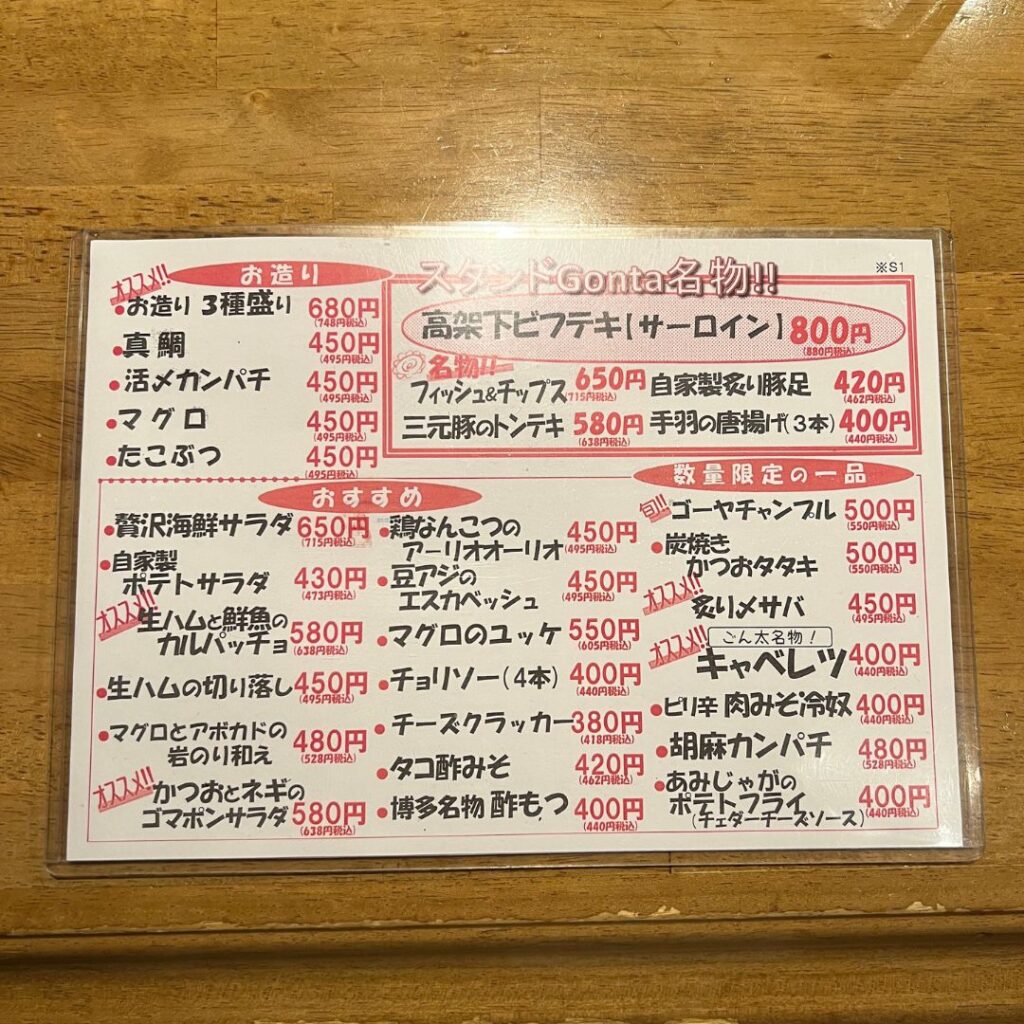 ※S1
お造り
オススメ!!
お造り 3種盛り 680円
(748円税込)
真鯛 450円
(495円税込)
活〆カンパチ 450円
(495円税込)
マグロ 450円
(495円税込)
たこぶつ 450円
(495円税込)
スタンドGonta名物!!
高架下ビフテキ【サーロイン】 800円
(880円税込)
名物!!
フィッシュ&チップス 650円
(715円税込)
自家製炙り豚足 420円
(462円税込)
三元豚のトンテキ 580円
(638円税込)
手羽の唐揚げ(3本) 400円
(440円税込)
おすすめ
贅沢海鮮サラダ 650円
(715円税込)
自家製
ポテトサラダ 430円
(473円税込)
オススメ!!
生ハムと鮮魚の
カルパッチョ 580円
(638円税込)
生ハムの切り落し 450円
(495円税込)
マグロとアボカドの
岩のり和え 480円
(528円税込)
オススメ!!
かつおとネギの
ゴマポンサラダ 580円
(638円税込)
鶏なんこつの
アーリオオーリオ 450円
(495円税込)
豆アジの
エスカベッシュ 450円
(495円税込)
マグロのユッケ 550円
(605円税込)
チョリソー(4本) 400円
(440円税込)
チーズクラッカー 380円
(418円税込)
タコ酢みそ 420円
(462円税込)
博多名物 酢もつ 400円
(440円税込)
数量限定の一品
旬!!
ゴーヤチャンプル 500円
(550円税込)
炭焼き
かつおタタキ 500円
(550円税込)
オススメ!!
炙り〆サバ 450円
(495円税込)
オススメ!!
ごん太名物!
キャベレツ 400円
(440円税込)
ピリ辛 肉みそ冷奴 400円
(440円税込)
胡麻カンパチ 480円
(528円税込)
あみじゃがの
ポテトフライ 400円
(チェダーチーズソース) (440円税込)